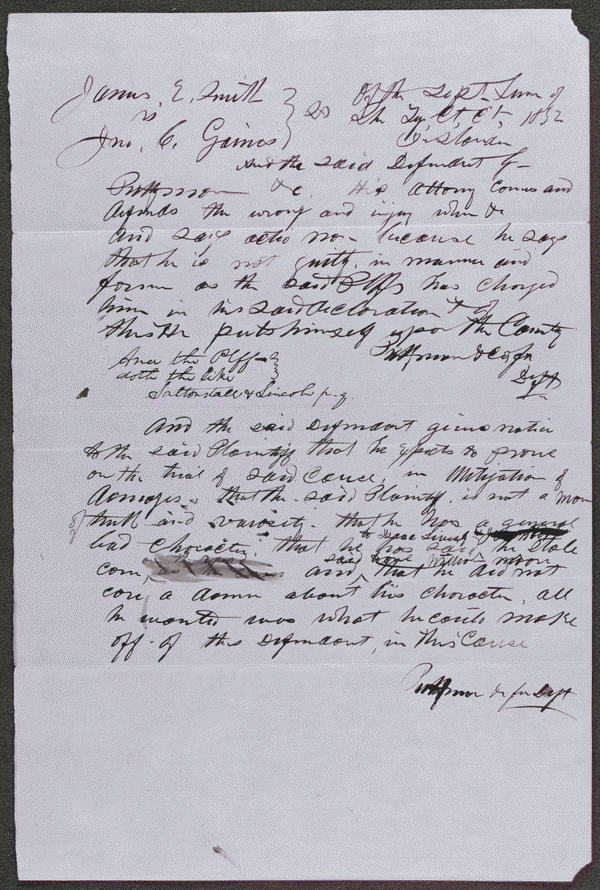 James. E. Smith
vs
Jno. C. Gaines
Of the Sept. Term of
the Ct, Ct, 1852
And the said Defendant by
&c. His attorny comes and
defends the wrong and injury when &c
and says actio non because he says
that he is not guilty in manner and
forme as the said Plffs has charged
him in his said declaration & of
this He puts himself upon the County
&co for
Dft
And the Plff
doth the like
& Lincoln p. q.
And the said Defendant gives notice
to the said Plaintiff that he expects to prove
on the trial of said cause, in Mitigation of
damages, that the said Plaintiff, is not a man
of truth and varacity. that he has a general
bad character, that he has said he stole
corn, and that he did not
care a damn about his character, all
he wanted was what he could make
off of this Defendant, in this Cause
& for Dft